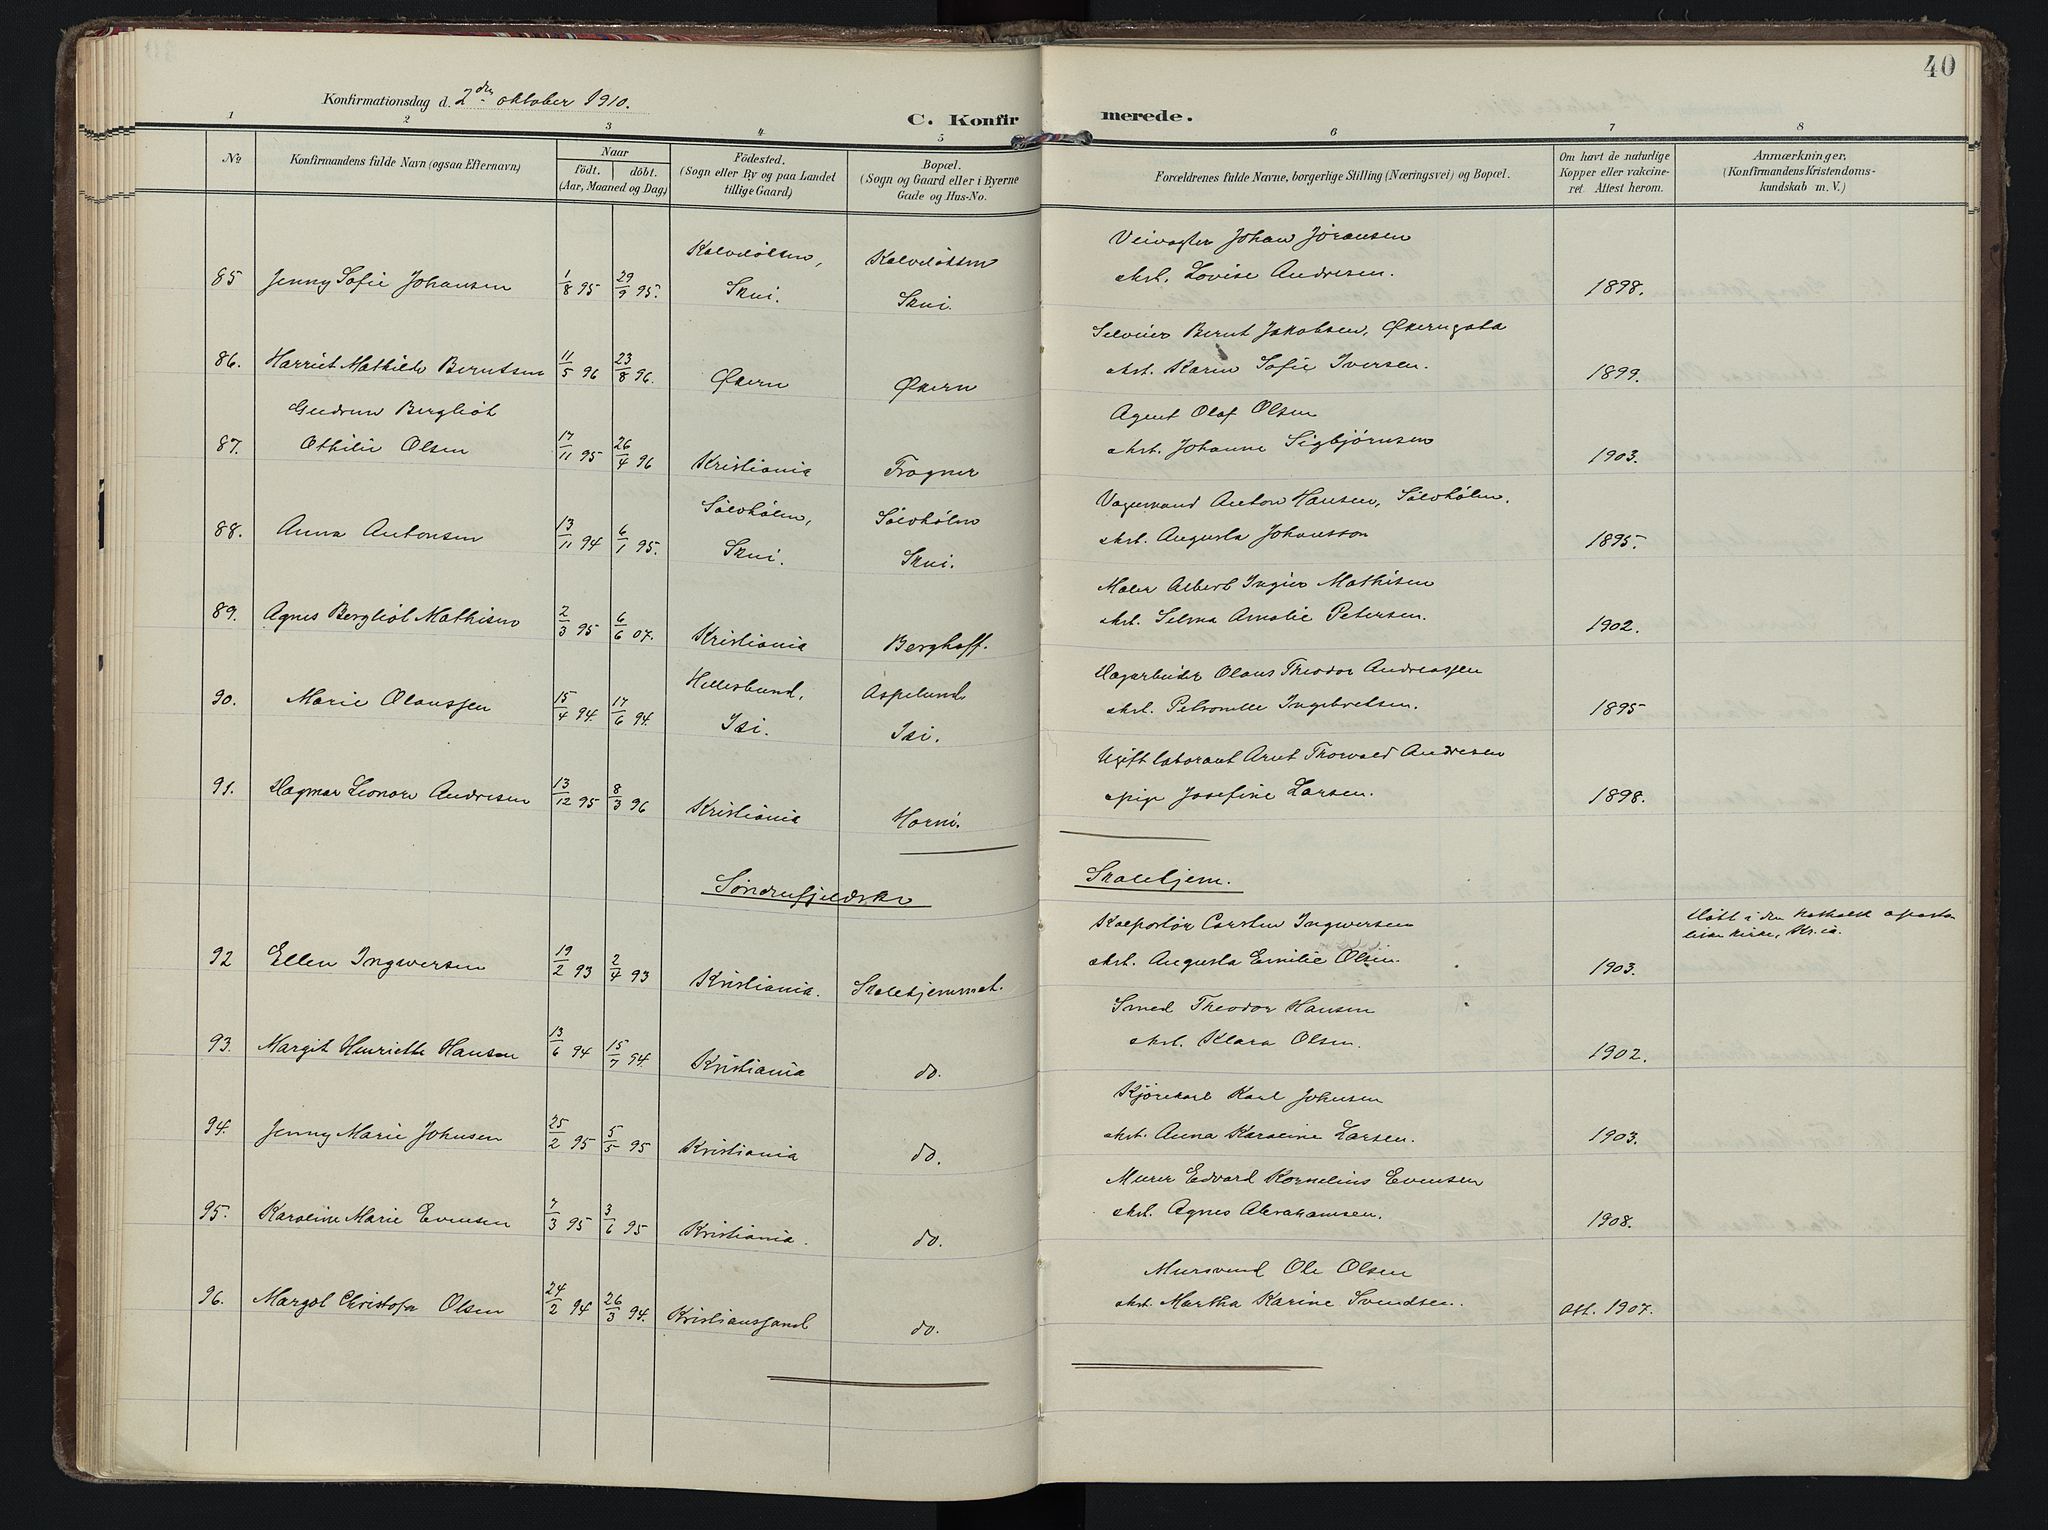 40
Konfirmationsdag d. 2den oktober 1910.
C. Konfirmerede.
1 2 3 4 5 6 7 8
No
Konfirmandens fulde Navn (ogsaa Efternavn)
Naar
födt. döbt.
(Aar, Maaned og Dag)
Födested.
(Sogn eller By og paa Landet
tillige Gaard)
Bopæl.
(Sogn og Gaard eller i Byerne
Gade og Hus-No.
Forældrenes fulde Navne, borgerlige Stilling (Næringsvei) og Bopæl.
Om havt de naturlige
Kopper eller vakcine-
ret. Attest herom.
Anmærkninger,
(Konfirmandens Kristendoms-
kundskab m. V.)
Veivogter Johan Jöransen
85 Jenny Sofie Johansen 1/8 95 29/9 95. Skui. Skui. Lovise Andresen. 1898.
Bernt Jakobsen, Økerngata
86. Harriet Mathilde Berntsen 11/5 96 23/8 96. Økern Økern Karin Sofie Iversen. 1899.
Gudrun Bergliot Agent Olaf Olsen
87. Othilie Olsen 17/11 95 26/4 96 Kristiania Frogner Johanne Sigbjørnsen 1903.
Sølvhølen, Sølvhølen Vognmand Anton Hansen, Sølvhølen.
88. Anna Antonsen 13/11 94 6/1 95. Skui. Skui. Augusta Johansson 1895.
Maler Albert Ingier Mathisen
89. Agnes Bergliot Mathisen 2/3 95 6/6 07. Kristiania Berghoff. Selma Amalie Petersen. 1902.
Aspelund Dagarbeider Olaus Theodor Andreassen
90. Marie Olaussen 15/4 94. 17/6 94. Isi. Isi. Petronelle Ingebretsen. 1895
Ugift laborant Arnt Thorvald Andresen
91. Dagmar Leonore Andresen 13/12 95 8/3 96 Kristiania Horni. pige Josefine Larsen. 1898.
Søndenfjeldske Skolehjem.
Kolportør Carsten Ingwersen Døbt i den katholsk aposto-
liske kirke, Kr.ia.
92 Ellen Ingwersen 19/2 93 2/4 93 Kristiania. Skolehjemmet. Augusta Emilie Olsen. 1903.
Smed Theodor Hansen
93. Margit Henriette Hansen 13/6 94 15/7 94. Kristiania do. Klara Olsen. 1902.
Kjørekarl Karl Johnsen
94. Jenny Marie Johnsen 25/2 95 5/5 95 Kristiania do. Anna Karoline Larsen. 1903.
Murer Edvard Kornelius Evensen
95. Karoline Marie Evensen 7/3 95 3/6 95 Kristiania. do. Agnes Abrahamsen. 1908.
Mursvend Ole Olsen
96. Margot Christofa Olsen 24/2 94 26/3 94. Kristianssand do. Martha Karine Svendsen. att. 1907.